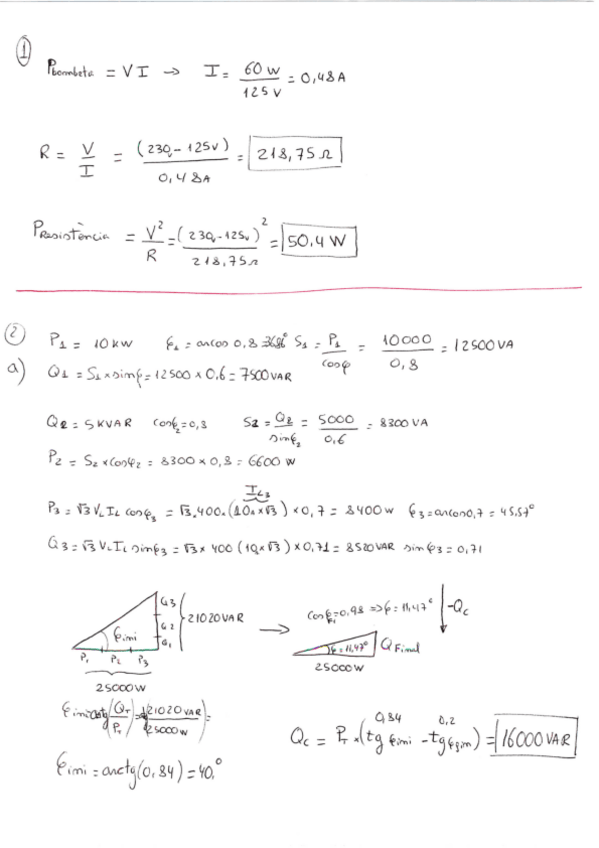 1
Pbombeta = V I → I = 60 W / 125 V = 0,48 A
R = V / I = (230v - 125v) / 0,48A = 218,75 Ω
PResistència = V² / R = (230v - 125v)² / 218,75Ω = 50,4 W
2
a)
P1 = 10 kW φ1 = arcos 0,8 = 36,86° S1 = P1 / cosφ = 10000 / 0,8 = 12500 VA
Q1 = S1 × sinφ = 12500 × 0,6 = 7500 VAR
Q2 = 5 KVAR cosφ2 = 0,8 S2 = Q2 / sinφ2 = 5000 / 0,6 = 8300 VA
P2 = S2 × cosφ2 = 8300 × 0,8 = 6600 W
IL3
P3 = √3 VL IL cosφ3 = √3 . 400 × (10A × √3) × 0,7 = 8400 W φ3 = arcos 0,7 = 45,57°
Q3 = √3 VL IL sinφ3 = √3 × 400 (10A × √3) × 0,71 = 8520 VAR sinφ3 = 0,71
Q3
Q2
Q1
21020 VAR
φ ini
P1 P2 P3
25000 W
→
cosφ = 0,98 ⇒ φ = 11,47°
-Qc
φ = 11,47°
Q Final
25000 W
φ ini = arctg (QT / PT) = (21020 VAR / 25000 W) =
φ ini = arctg (0,84) = 40°
0,84 0,2
Qc = PT × (tg φini - tg φfin) = 16000 VAR